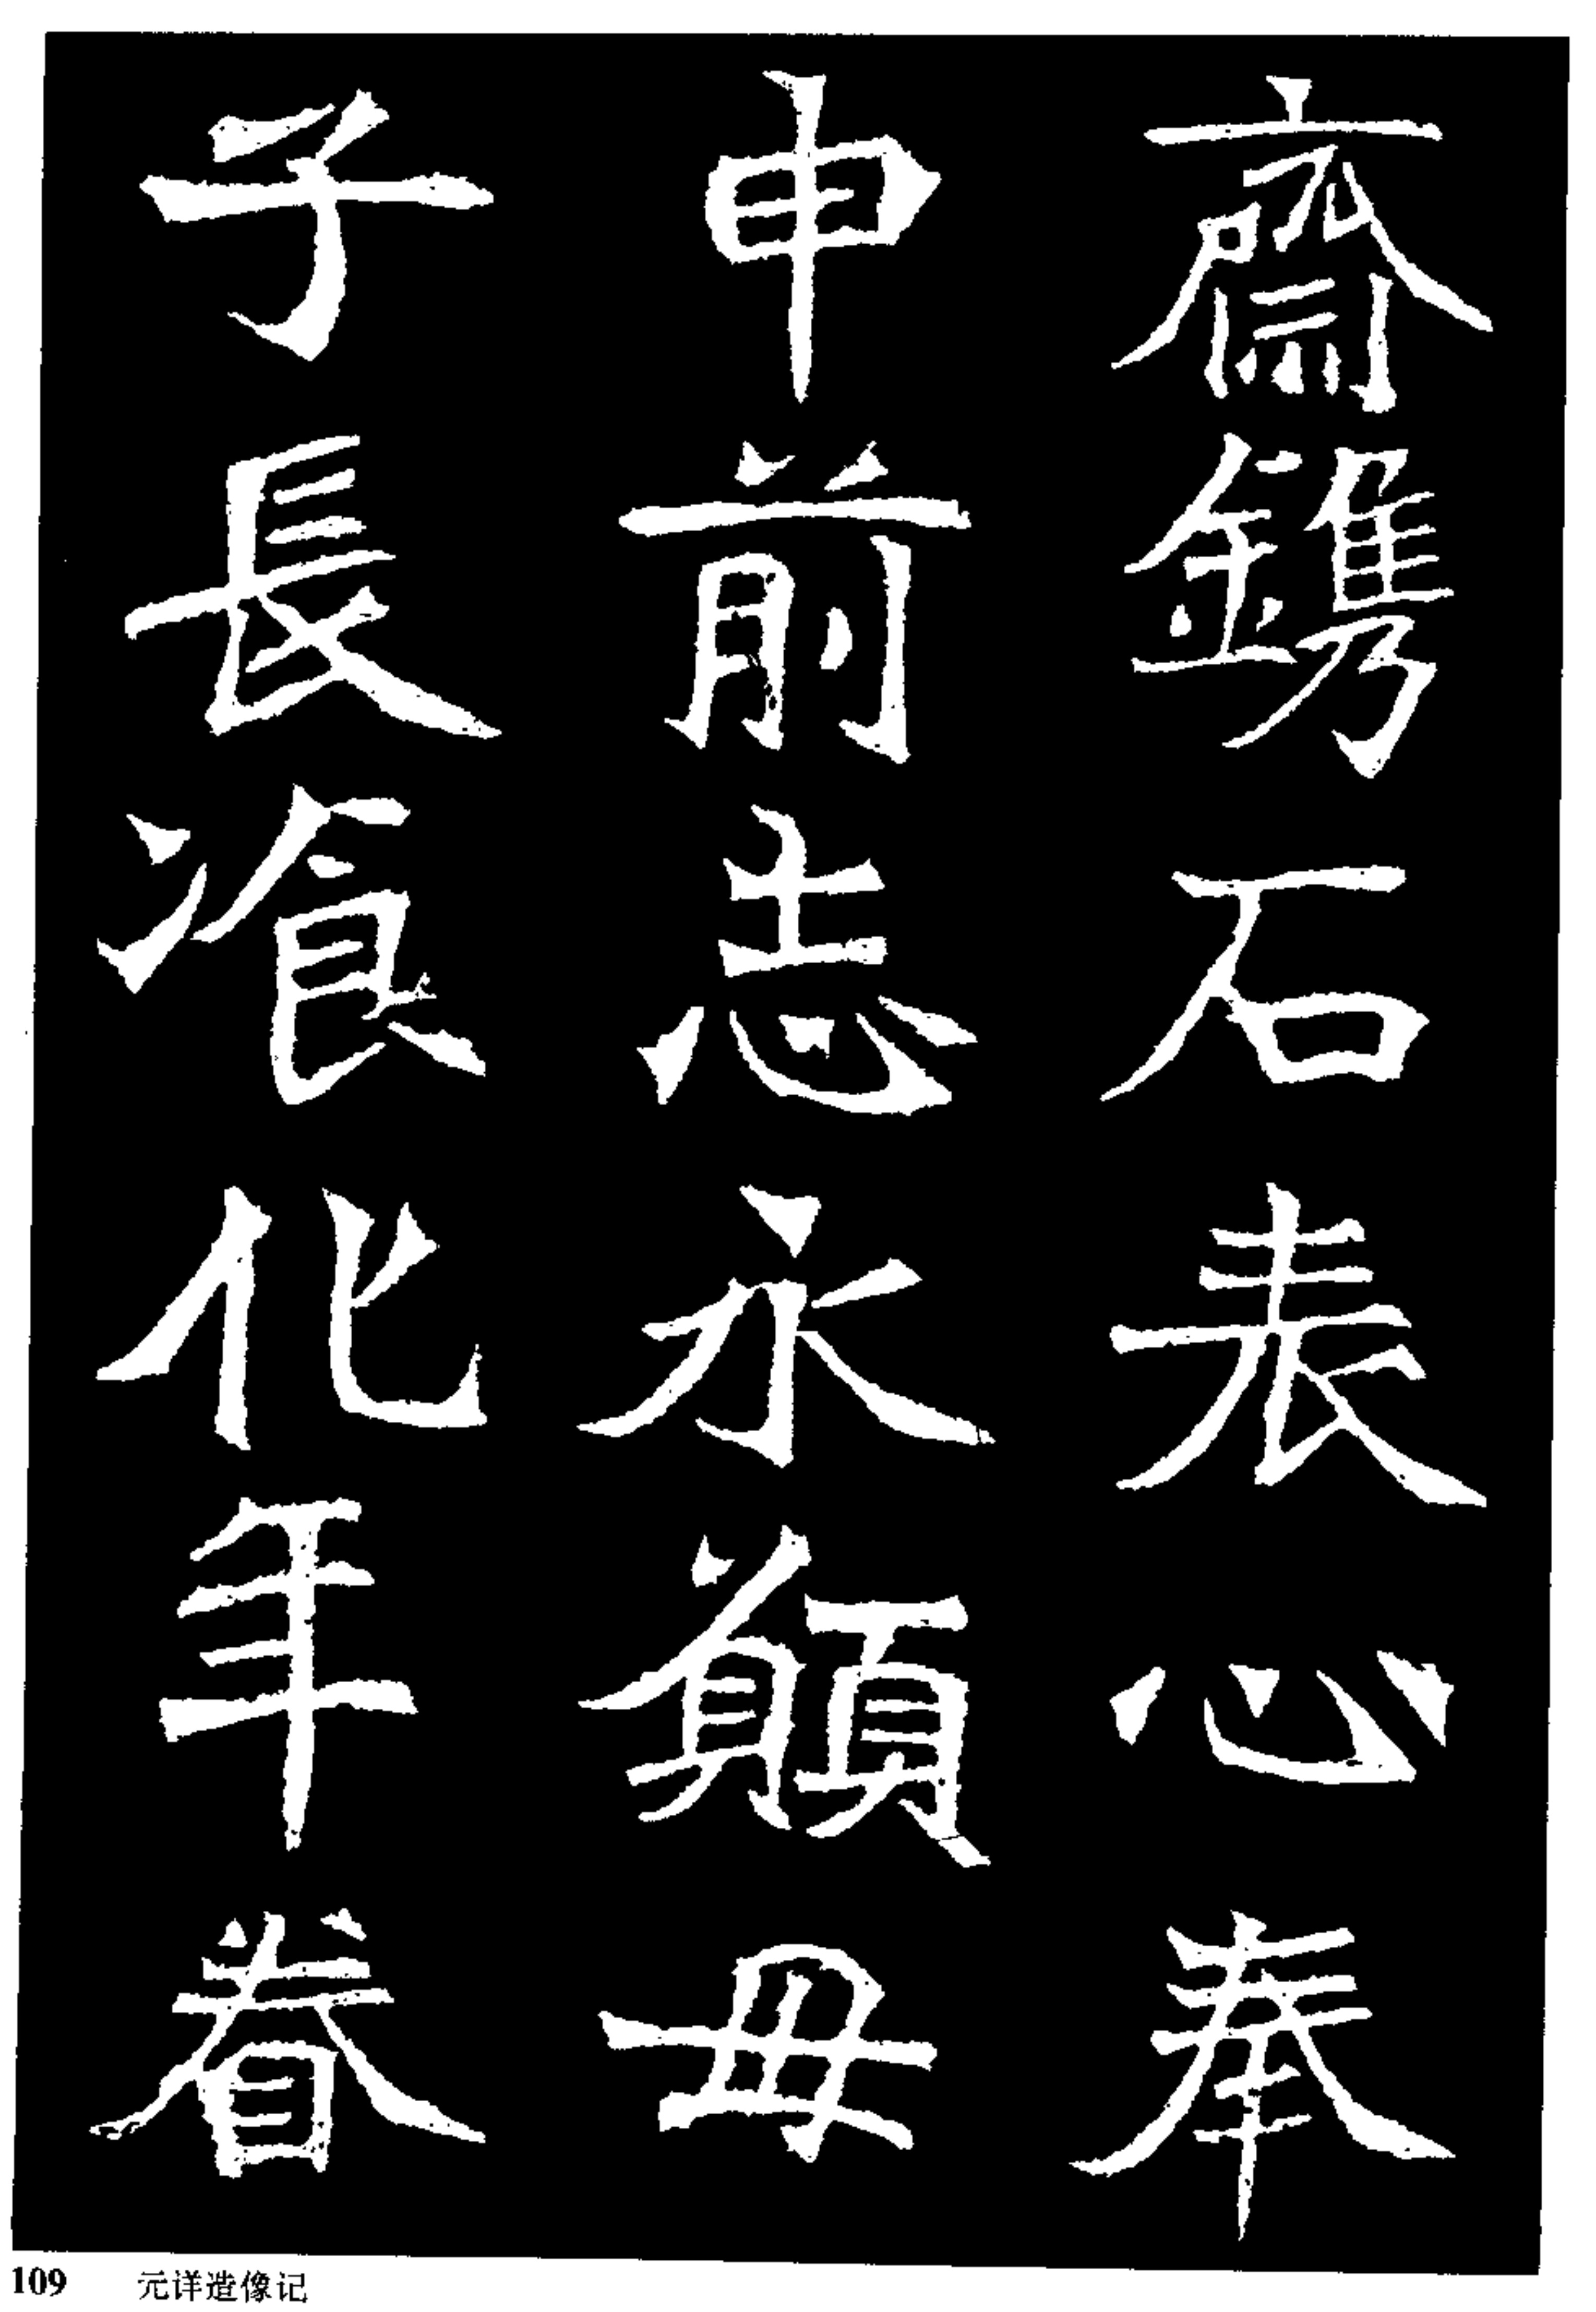 齋鎸石表心奉
申前志永願母
子長飡化年眷
109 元详造像记